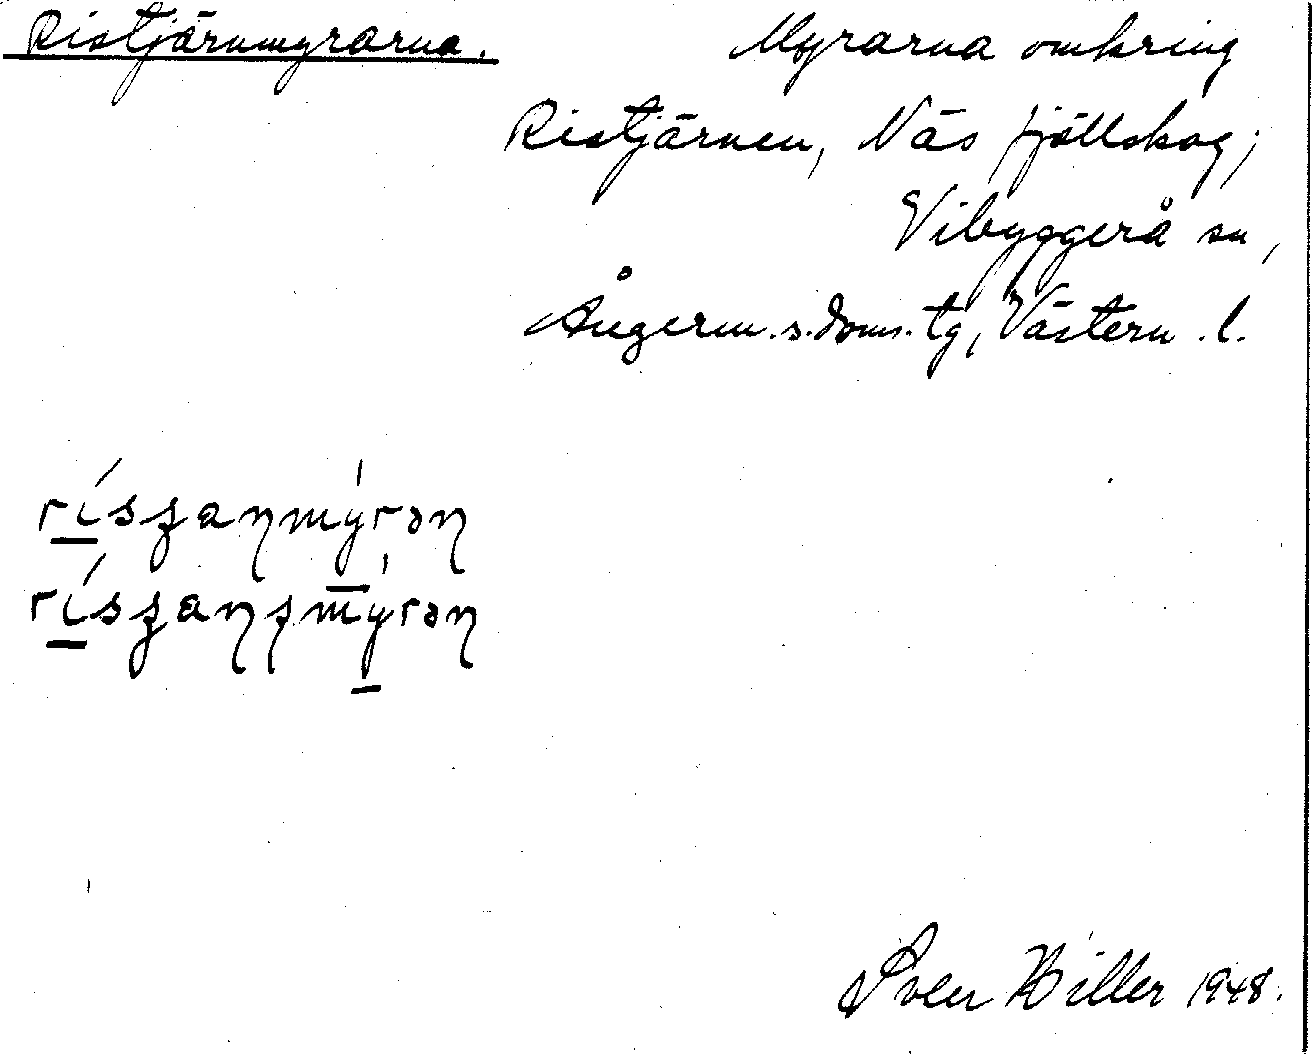 Ristjärnmyrarna.
Myrarna omkring
Ristjärnen, Näs fjällskog;
Vibyggerå sn,
Ångerm.s.doms.tg, Västern.l.
Sven Hiller 1948.